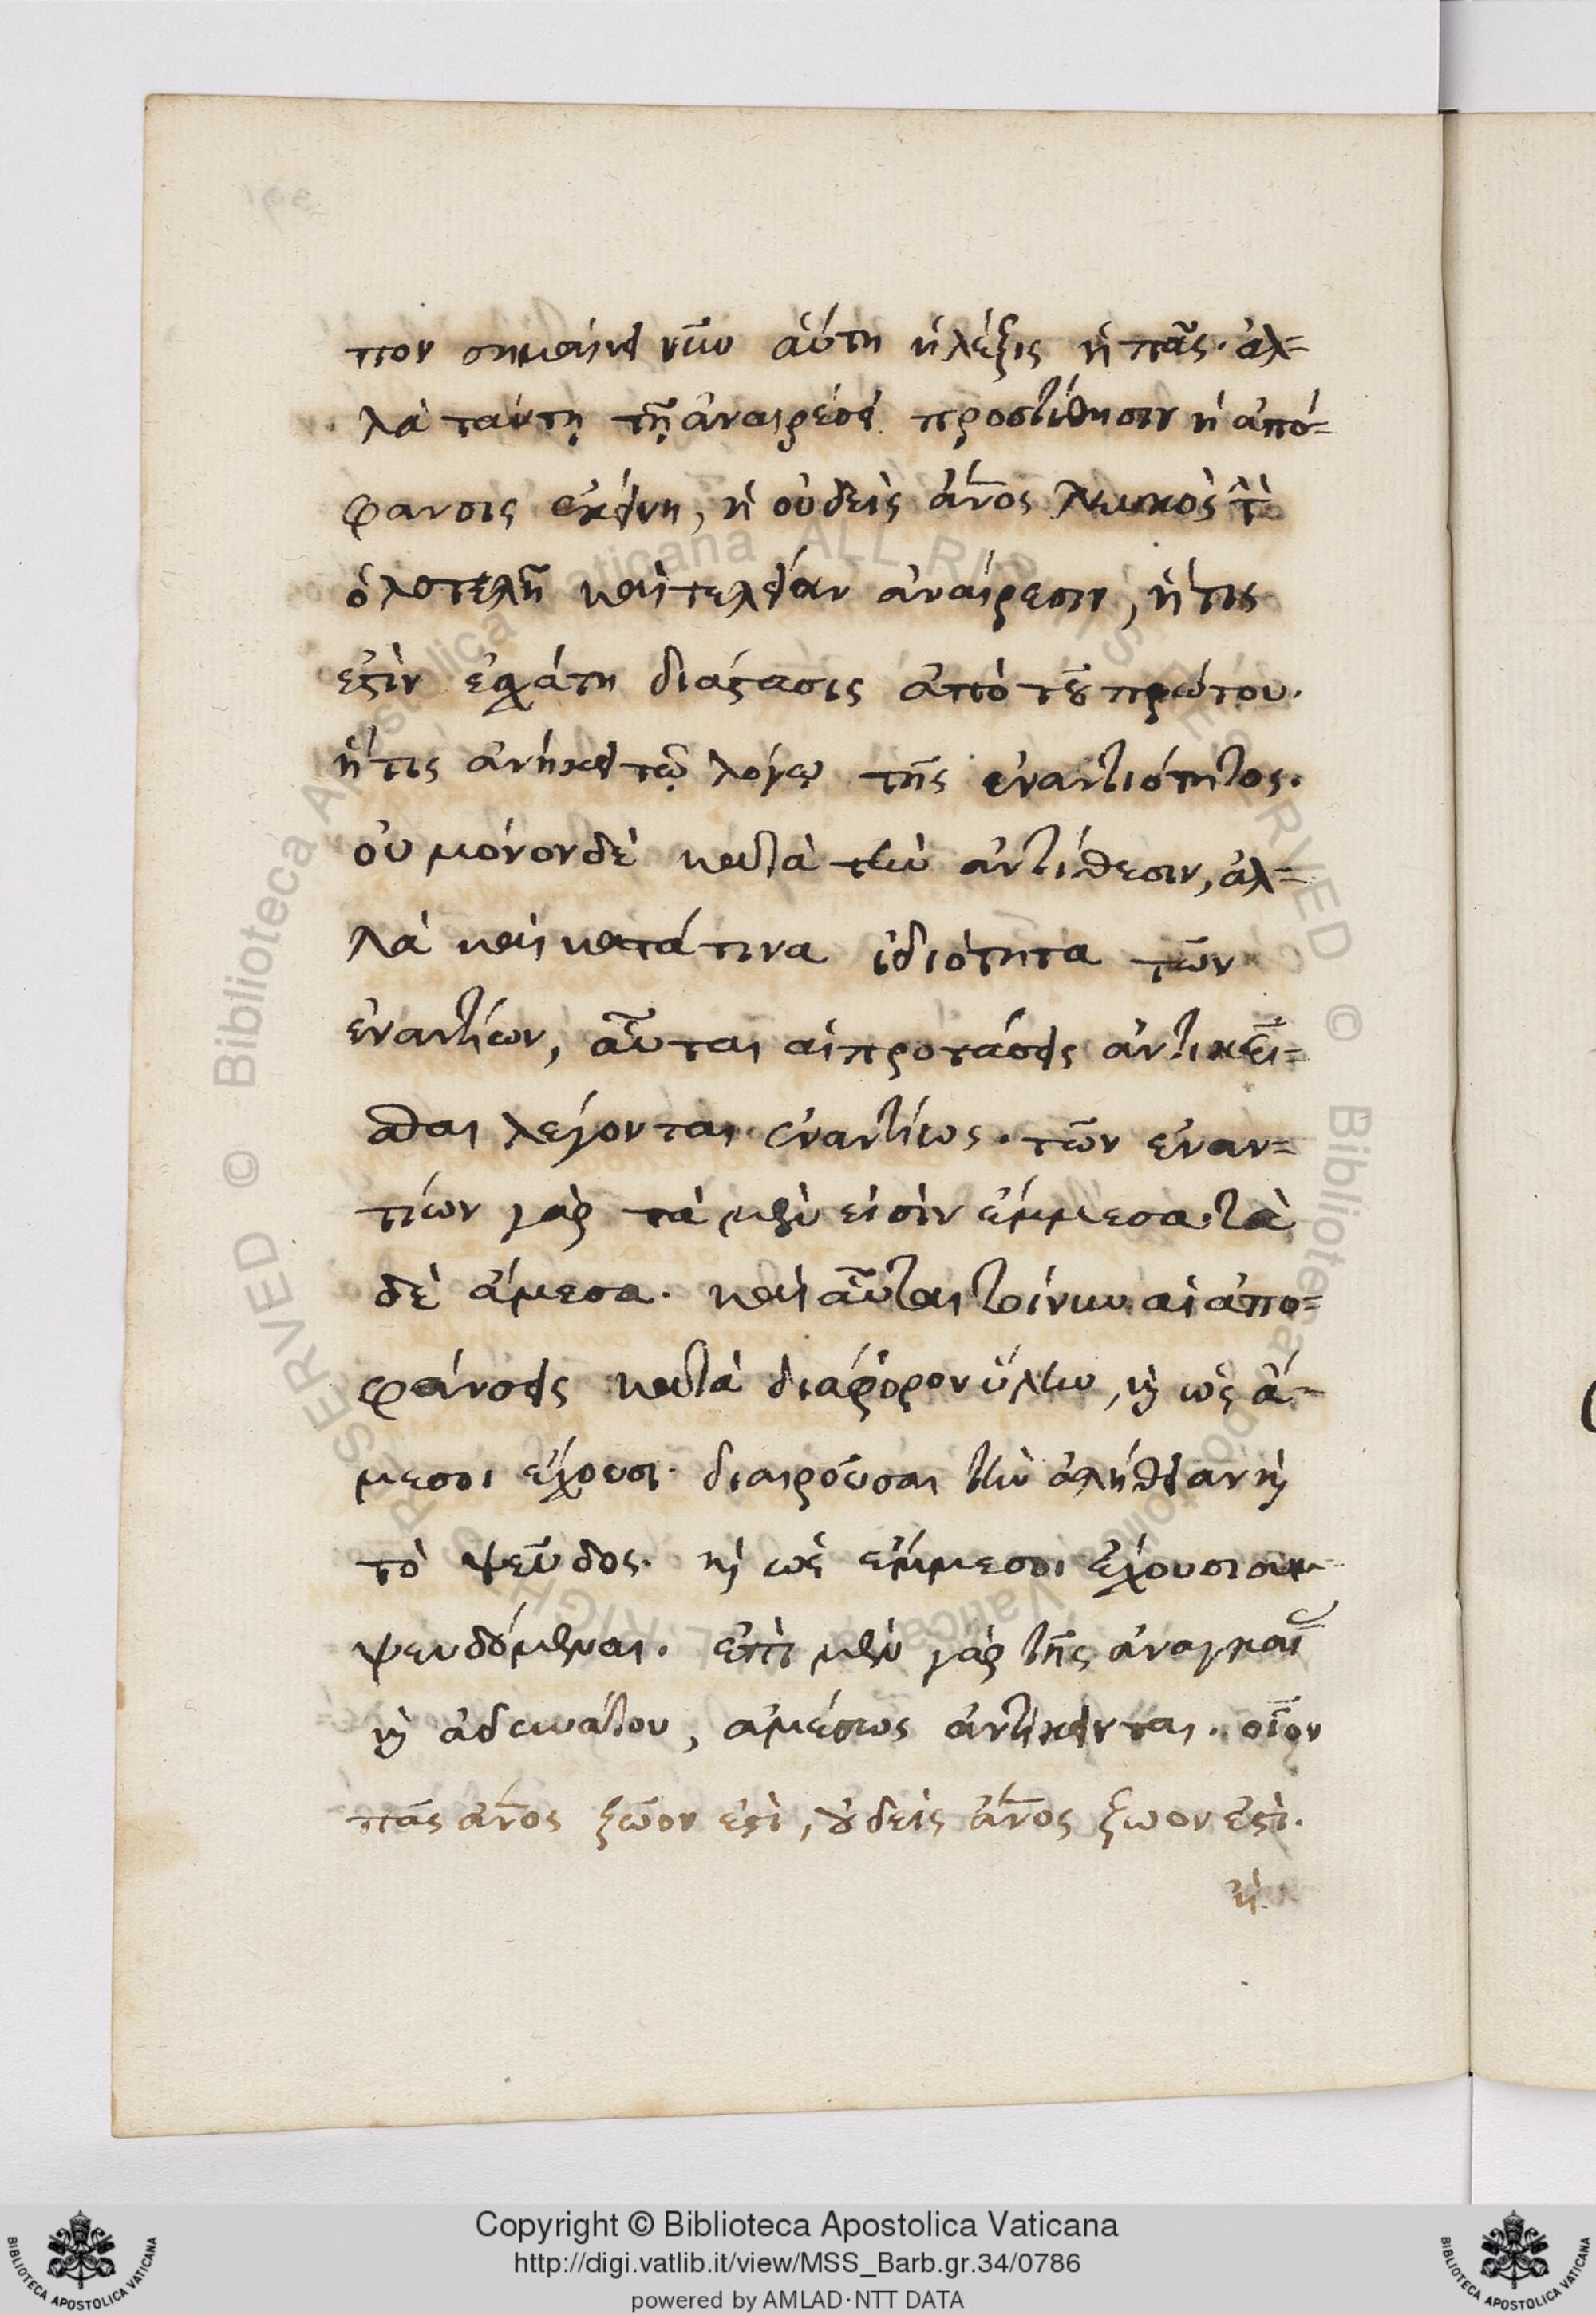 πον σημαίνει νῦν αὕτη ἡ λέξις ἡ πᾶς. ἀλ=
λὰ ταύτῃ τῇ ἀναιρέσει προστίθησιν ἡ ἀπό=
φανσις ἐκείνη, ἡ οὐδεὶς ἄν̅ος λευκὸς
ὁλοτελῆ καὶ τελείαν ἀναίρεσιν, ἥτις
ἐστὶν ἐσχάτη διάστασις ἀπὸ τοῦ πρώτου.
ἥτις ἀνήκει τῷ λόγῳ τῆς ἐναντιότητος.
οὐ μόνον δὲ κατὰ τὴν ἀντίθεσιν, ἀλ=
λὰ καὶ κατά τινα ἰδιότητα τῶν
ἐναντίων, αὗται αἱ προτάσεις ἀντικεῖ=
σθαι λέγονται ἐναντίως. τῶν ἐναν=
τίων γὰρ τὰ μὲν εἰσὶν ἔμμεσα. τὰ
δὲ ἄμεσα. καὶ αὗται τοίνυν αἱ ἀπο=
φάνσεις κατὰ διάφορον ὕλην, καὶ ὡς ἄ=
μεσοι ἔχουσι. διαιροῦσαι τὴν ἀλήθειαν καὶ
τὸ ψεῦδος. καὶ ὡς ἔμμεσοι ἔχουσι συμ=
ψευδόμεναι. ἐπὶ μὲν γὰρ τῆς ἀναγκαί
καὶ ἀδυνάτου, ἀμέσως ἀντίκεινται. οἷον
πᾶς ἄν̅ος ζῶον ἐστὶ, οὐδεὶς ἄν̅ος ζωον ἐστὶ.
ἡ
Copyright © Biblioteca Apostolica Vaticana
http://digi.vatlib.it/view/MSS_Barb.gr.34/0786
powered by AMLAD·NTT DATA